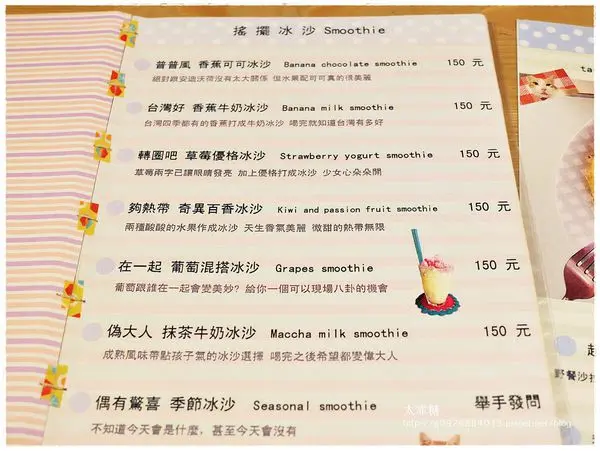 搖擺冰沙 Smoothie
普普風 香蕉可可冰沙 Banana chocolate smoothie 150 元
絕對跟安迪沃荷沒有太大關係 但水果配可可真的很美麗
台灣好 香蕉牛奶冰沙 Banana milk smoothie 150 元
台灣四季都有的香蕉打成牛奶冰沙 喝完就知道台灣有多好
轉圈吧 草莓優格冰沙 Strawberry yogurt smoothie 150 元
草莓兩字已讓眼睛發亮 加上優格打成冰沙 少女心朵朵開
夠熱帶 奇異百香冰沙 Kiwi and passion fruit smoothie 150 元
兩種酸酸的水果作成冰沙 天生香氣美麗 微甜的熱帶無限
在一起 葡萄混搭冰沙 Grapes smoothie 150 元
葡萄跟誰在一起會變美妙? 給你一個可以現場八卦的機會
偽大人 抹茶牛奶冰沙 Maccha milk smoothie 150 元
成熟風味帶點孩子氣的冰沙選擇 喝完之後希望都變偉大人
偶有驚喜 季節冰沙 Seasonal smoothie 舉手發問
不知道今天會是什麼，甚至今天會沒有
ta
起
野餐沙拉